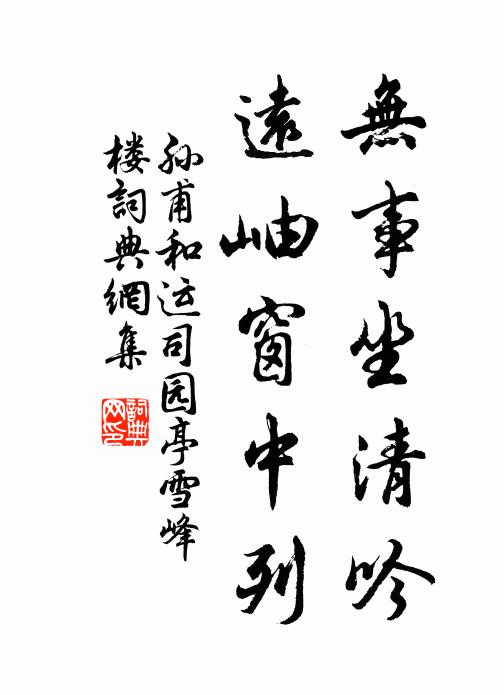 無事坐清吟
遠岫窗中列
孙甫和运司园亭雪峰
楼詞典網集
詞典
网印